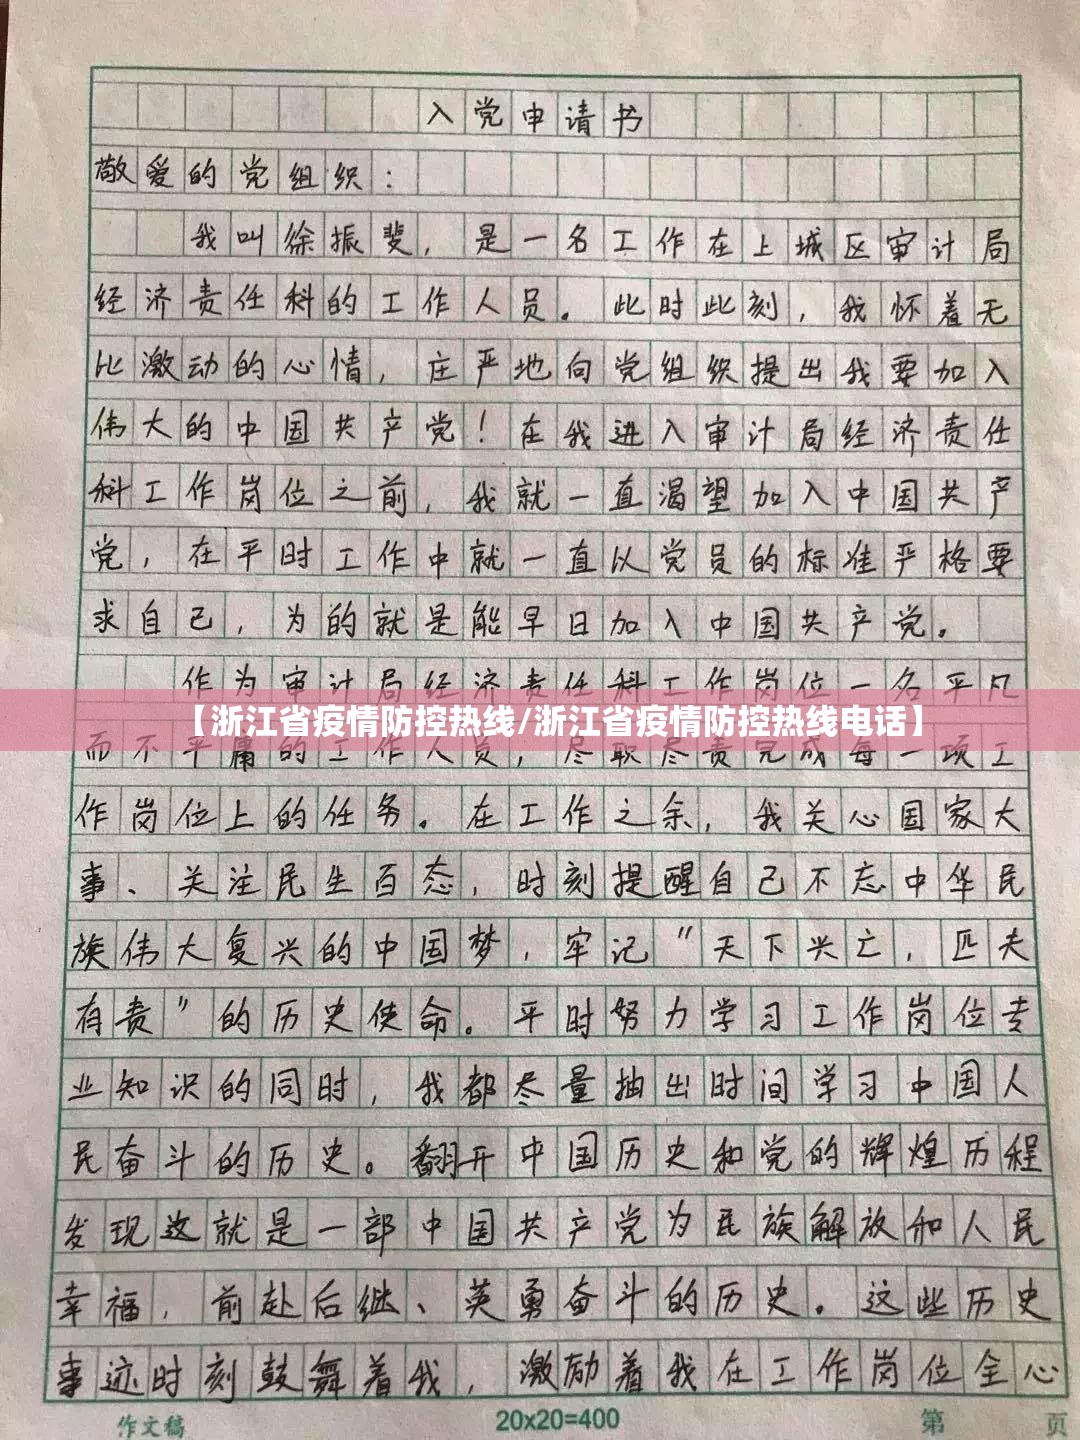 入党申请书
敬爱的党组织：
我叫徐振斐，是一名工作在上城区审计局
经济责任科的工作人员。此时此刻，我怀着无
比激动的心情，庄严地向党组织提出我要加入
伟大的中国共产党！在我进入审计局经济责任
科工作岗位之前，我就一直渴望加入中国共产
党，在平时工作中就一直以党员的标准严格要
求自己，为的就是能早日加入中国共产党。
作为审计局经济责任科工作岗位一名平凡
【浙江省疫情防控热线/浙江省疫情防控热线电话】
而不平庸的工作人员，尽职尽责完成每一项工
作岗位上的任务。在工作之余，我关心国家大
事、关注民生百态，时刻提醒自己不忘中华民
族伟大复兴的中国梦，牢记“天下兴亡，匹夫
有责”的历史使命。平时努力学习工作岗位专
业知识的同时，我都尽量抽出时间学习中国人
民奋斗的历史。翻开中国历史和党的辉煌历程
发现这就是一部中国共产党为民族解放和人民
幸福，前赴后继、英勇奋斗的历史。这些历史
事迹时刻鼓舞着我，激励着我在工作岗位全心
作文稿 20x20=400 第 页